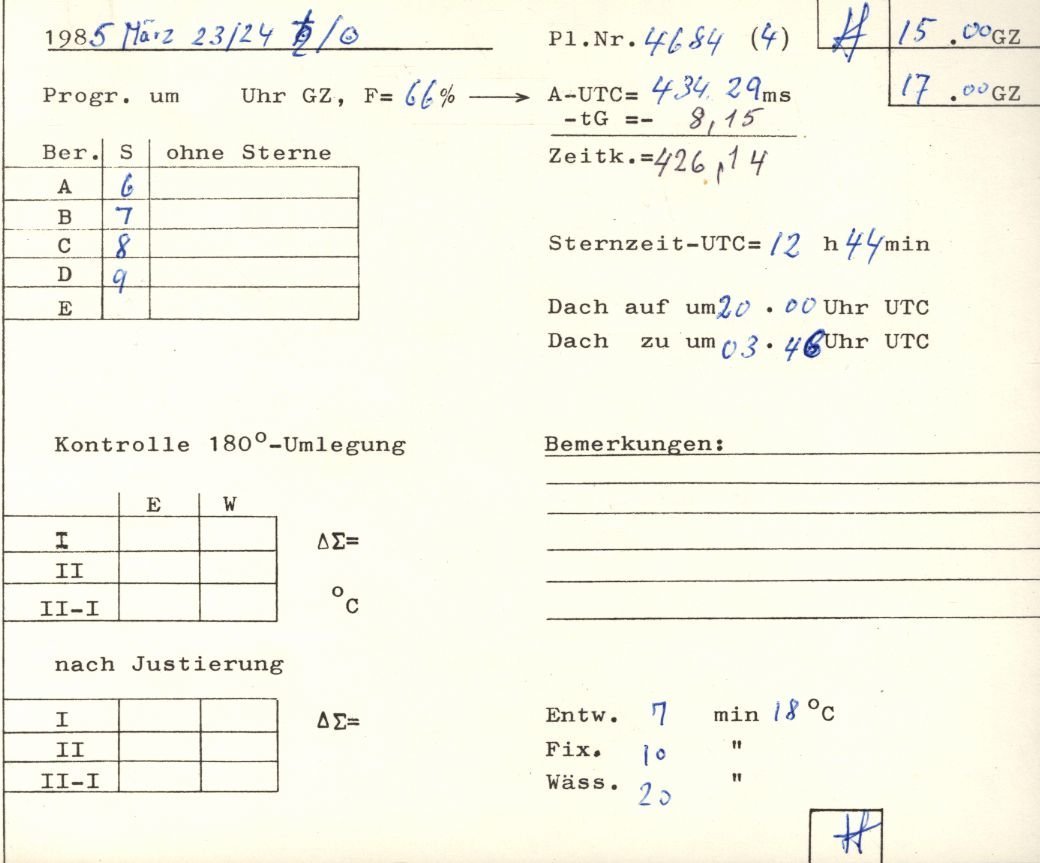 1985 März 23/24 ♄/☉
Pl.Nr. 4684 (4)
15.00 GZ
Progr. um Uhr GZ, F= 66% → A-UTC= 434.29 ms
17.00 GZ
-tG =- 8,15
Ber. S ohne Sterne
Zeitk.= 426,14
A 6
B 7
C 8
D 9
E
Sternzeit-UTC= 12 h 44 min
Dach auf um 20.00 Uhr UTC
Dach zu um 03.46 Uhr UTC
Kontrolle 180°-Umlegung
Bemerkungen:
E W
I ΔΣ=
II
II-I °C
nach Justierung
I ΔΣ=
II
II-I
Entw. 7 min 18 °C
Fix. 10 "
Wäss. 20 "